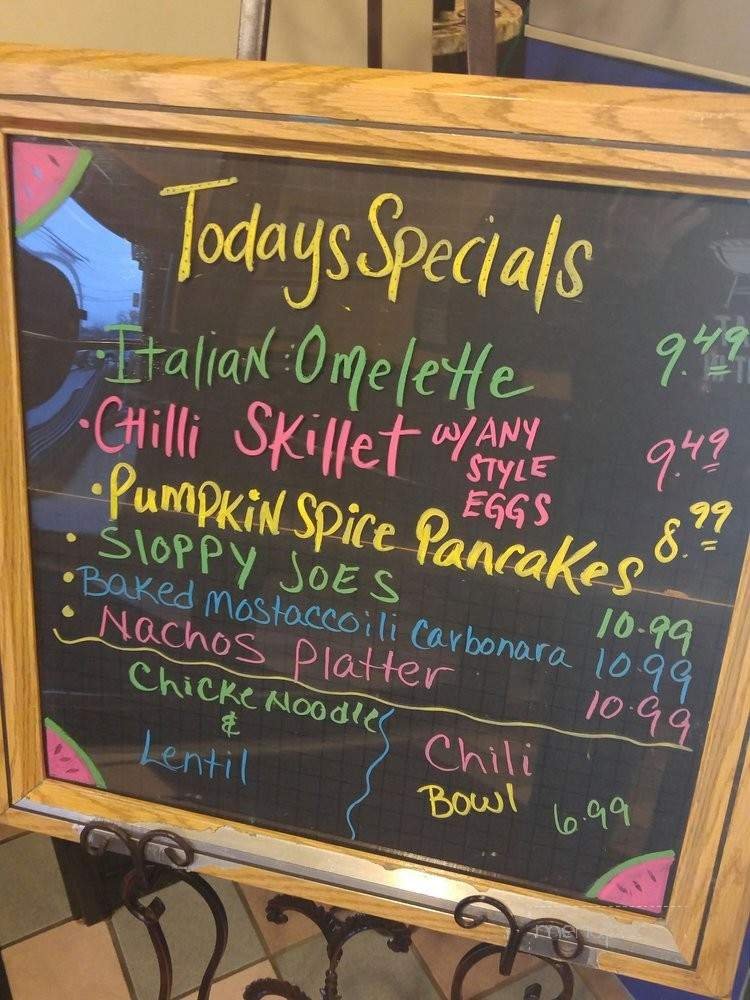 Todays Specials
• Italian Omelette 9.49
• CHilli Skillet w/ ANY STYLE EGGS 9.49
• PUMPKIN SPice Pancakes 8.99
• SLOPPY JOES 10.99
• Baked Mostaccoili Carbonara 10.99
• Nachos Platter 10.99
Chicke Noodle
&
Lentil
Chili
Bowl 6.99